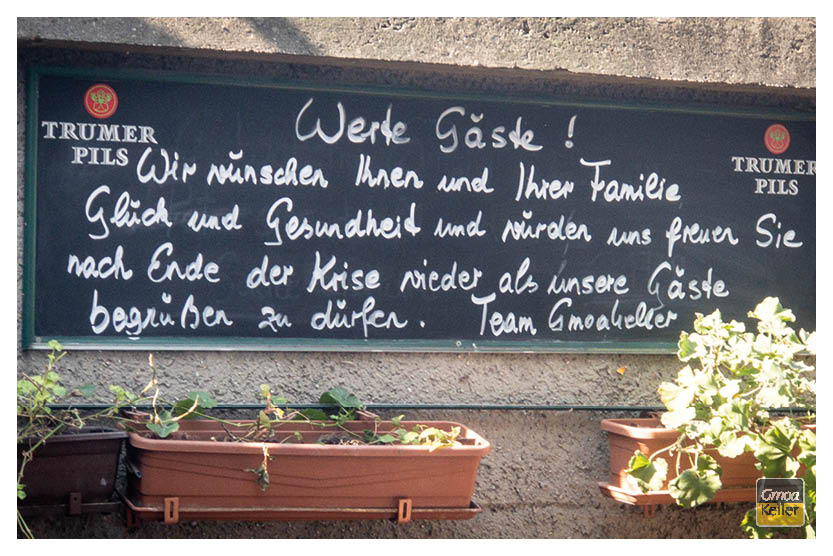 TRUMER
PILS
Werte Gäste !
TRUMER
PILS
Wir wünschen Ihnen und Ihrer Familie
Glück und Gesundheit und würden uns freuen Sie
nach Ende der Krise wieder als unsere Gäste
begrüßen zu dürfen. Team Gmoakeller
Gmoa
Keller